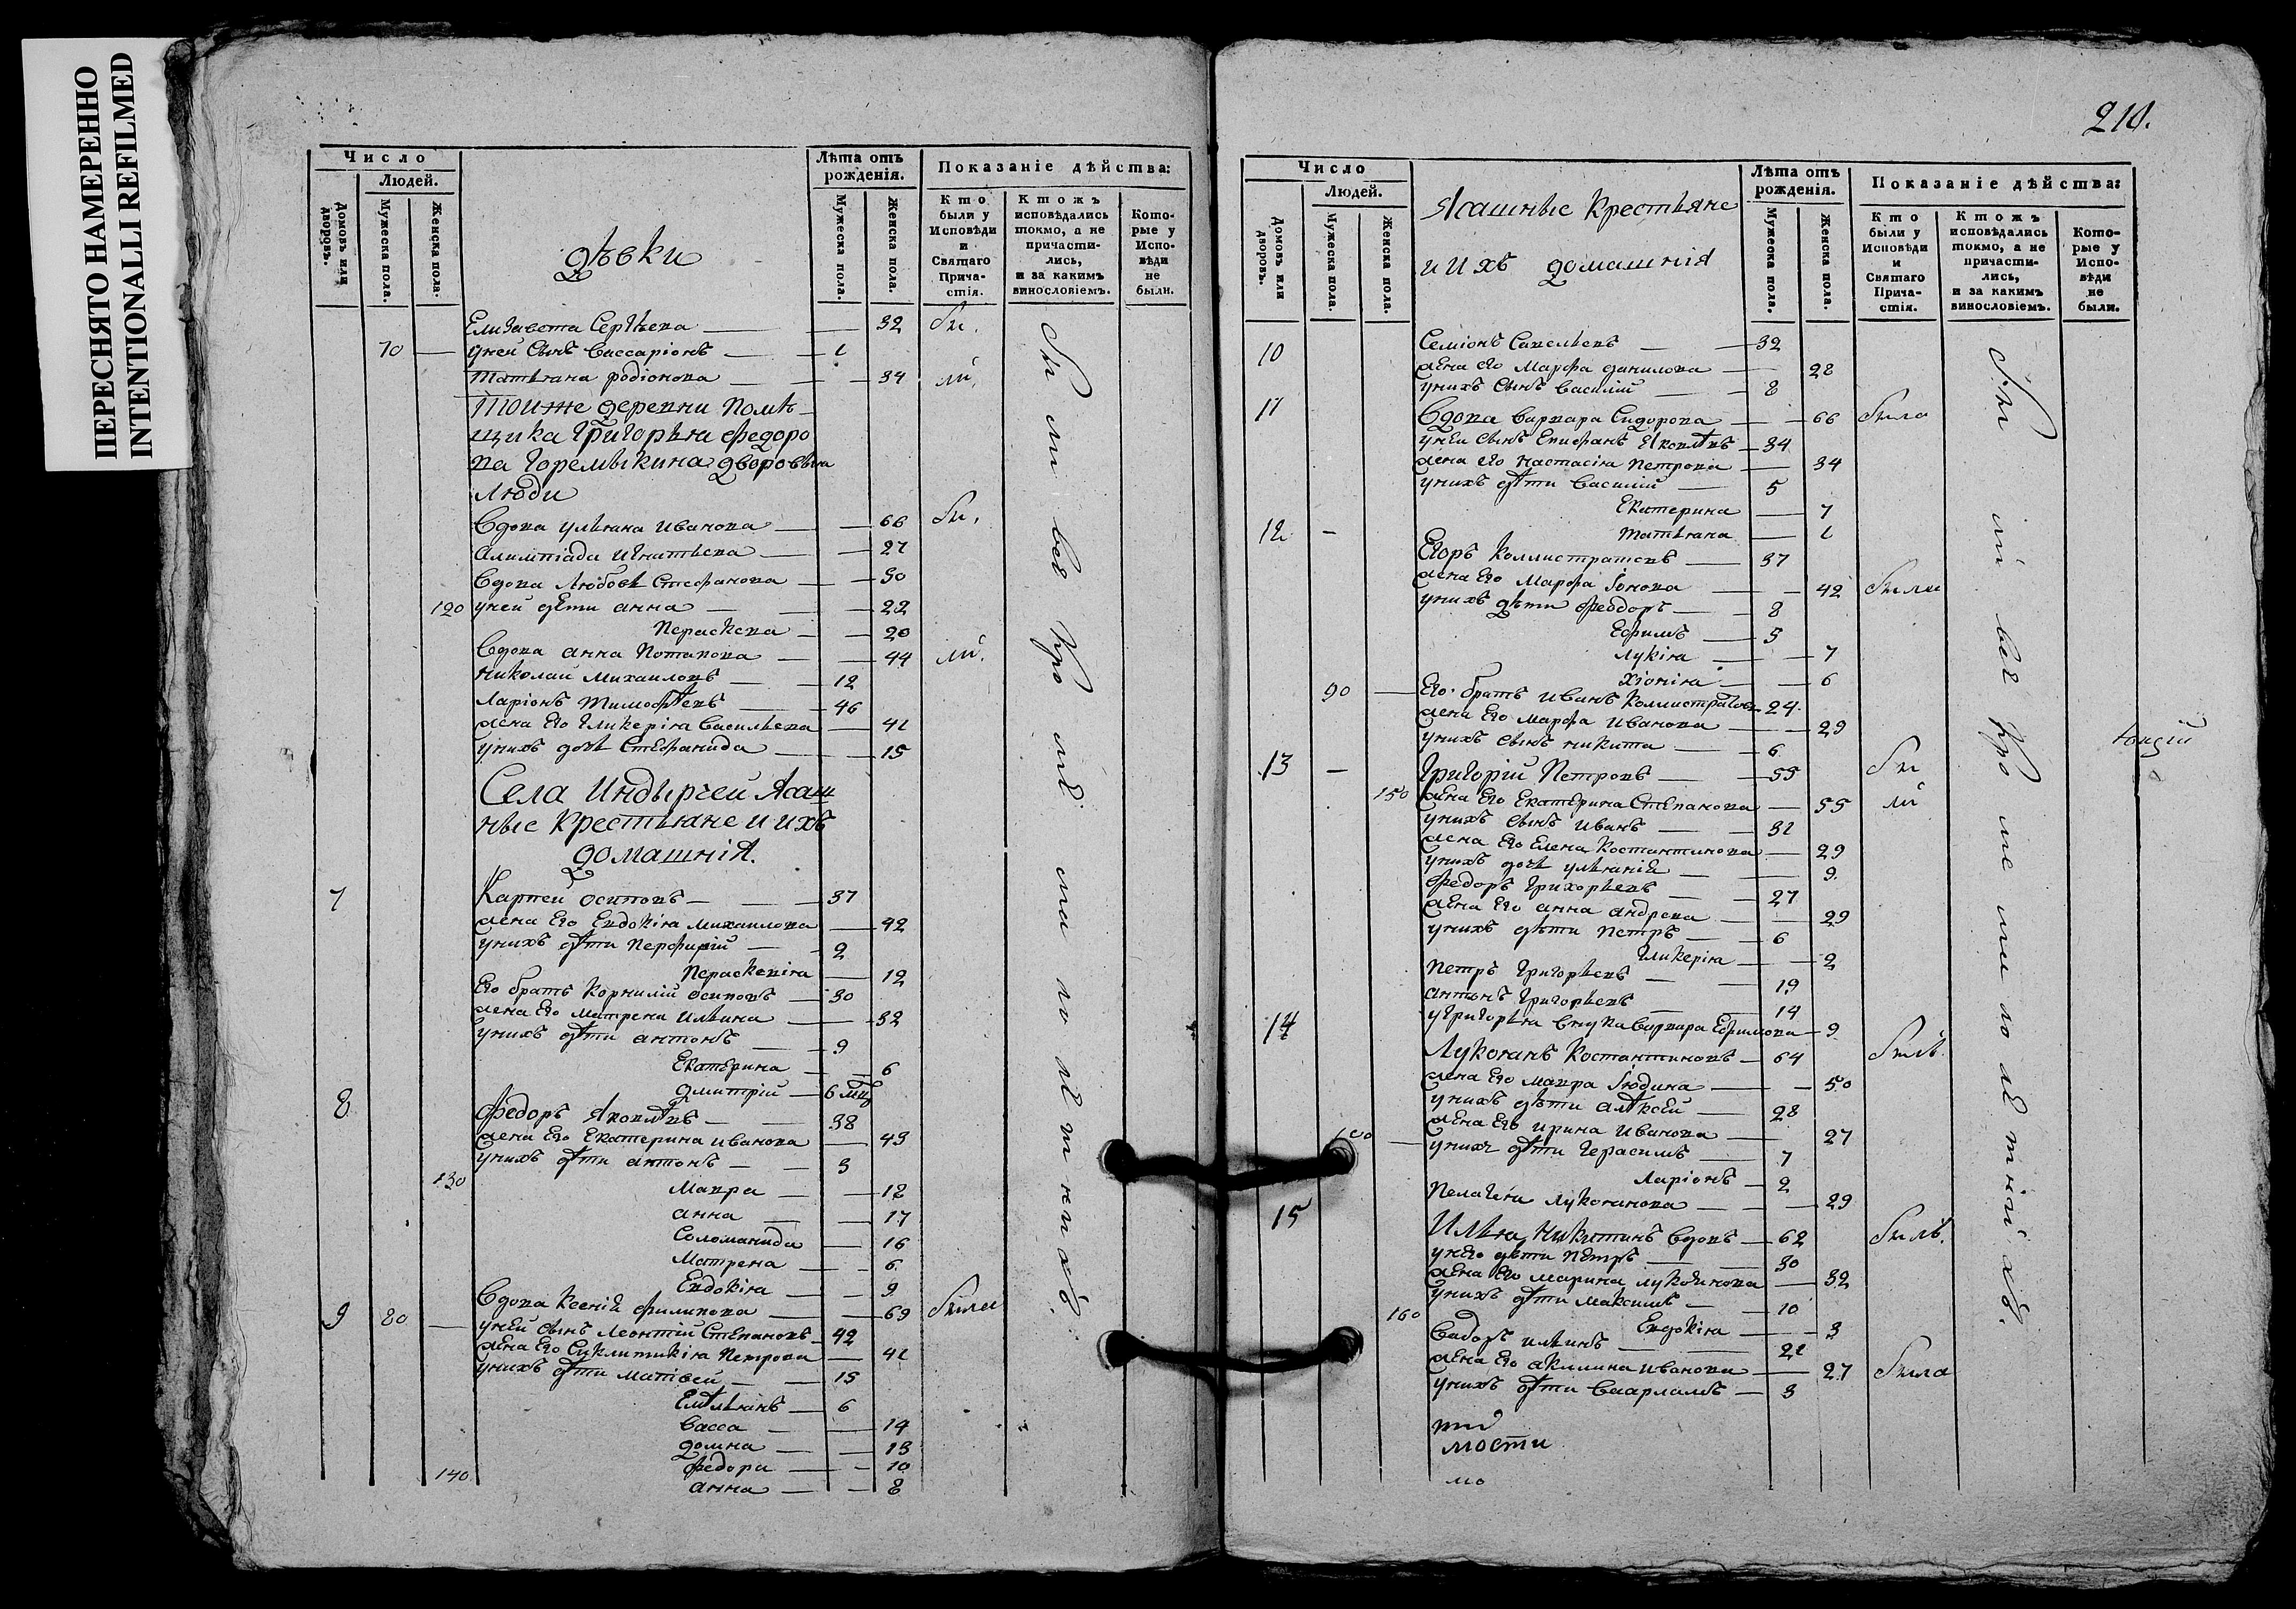 ПЕРЕСНЯТО НАМЕРЕННО
INTENTIONALLI REFILMED
Число
Людей.
Домовъ или дворовъ.
Мужеска пола.
Женска пола.
дѣвки
Лѣта отъ рожденія.
Мужеска пола.
Женска пола.
Показаніе дѣйства:
Кто были у Исповѣди и Святаго Причастія.
Ктожъ исповѣдались токмо, а не причастились, и за какимъ винословіемъ.
Которые у Исповѣди не были.
Елизавета Сергѣева 32 бы,
70 уней Сынъ Вассаріонъ 1
Татьяна родіонова 34 ли,
Тоиже деревни помѣ
щика Григорья федоро
ва Горемыкина дворовыя
люди
Вдова ульяна иванова 66 бы,
Алимпіада игнатьева 27
Вдова Любовь Стефанова 50
120 уней дѣти анна 22
Пераскева 20
Вдова анна Потапова 44 ли,
николаи михаиловъ 12
Ларіонъ тимофѣевъ 46
жена его гликерія васильева 41
унихъ дочь Стефанида 15
Села Индырчеи Ясаш
ные крестьяне и ихъ
домашнія.
7 Карпеи осиповъ 37
жена его Евдокія михаилова 42
унихъ дѣти Перфирій 2
Пераскевія 12
Его братъ корнилій осиповъ 30
жена его матрена ильина 32
унихъ дѣти антонъ 9
Екатерина 6
дмитрій 6 мцъ
8 федоръ Яковлѣвъ 38
жена его Екатерина иванова 43
унихъ дѣти антонъ 3
130 мавра 12
анна 17
Соломанида 16
матрена 6
Евдокія 9
9 80 Вдова ксенія филипова 69 была
уней сынъ леонтій Степановъ 42
жена его Суклитикія петрова 41
унихъ дѣти матвеи 15
Емѣльянъ 6
Васса 14
домна 13
федора 10
140 анна 8
бы ли всѣ кро мѣ ма ло лѣ тнихъ.
210.
Число
Людей.
Домовъ или дворовъ.
Мужеска пола.
Женска пола.
Ясашные крестьяне
и ихъ домашнія
Лѣта отъ рожденія.
Мужеска пола.
Женска пола.
Показаніе дѣйства:
Кто были у Исповѣди и Святаго Причастія.
Ктожъ исповѣдались токмо, а не причастились, и за какимъ винословіемъ.
Которые у Исповѣди не были.
10 Семіонъ Савельевъ 32
жена его марфа данилова 28
унихъ Сынъ василій 8
11 Вдова варвара Сидорова 66 была
уней сынъ Епифанъ Яковлѣвъ 34
жена его настасія петрова 34
унихъ дѣти василій 5
Екатерина 7
12 татьяна 1
Егоръ каллистратовъ 37
жена его марфа Іонова 42 были
унихъ дѣти феодоръ 8
Ефимъ 3
лукія 7
хіонія 6
90 Его братъ иванъ каллистратовъ 24
жена его марфа иванова 29
унихъ сынъ никита 6
13 Григорій петровъ 55 бы
150 жена его Екатерина Степанова 55 ли
унихъ сынъ иванъ 31
жена его елена костантинова 29
унихъ дочь ульянія 9
федоръ григорьевъ 27
жена его анна андрева 29
унихъ дѣти петръ 6
гликерія 2
петръ григорьевъ 19
антонъ григорьевъ 14
14 угригорья внука варвара Ефимова 9
Лукоянъ костантиновъ 64 былъ
жена его мавра Іюдина 50
унихъ дѣти алѣксѣи 28
жена его ирина иванова 27
100 унихъ дѣти герасимъ 7
ларіонъ 2
пелагея лукоянова 29
15 Илья никитинъ вдовъ 62 былъ.
унего дѣти петръ 30
жена его марина лукоянова 32
унихъ дѣти максимъ 10
160 Евдокія 3
Сидоръ ильинъ 21
жена его акилина иванова 27 была
унихъ дѣти Варламъ 3
мости
мо
бы ли всѣ кро ме ма ло лѣ тнихъ.